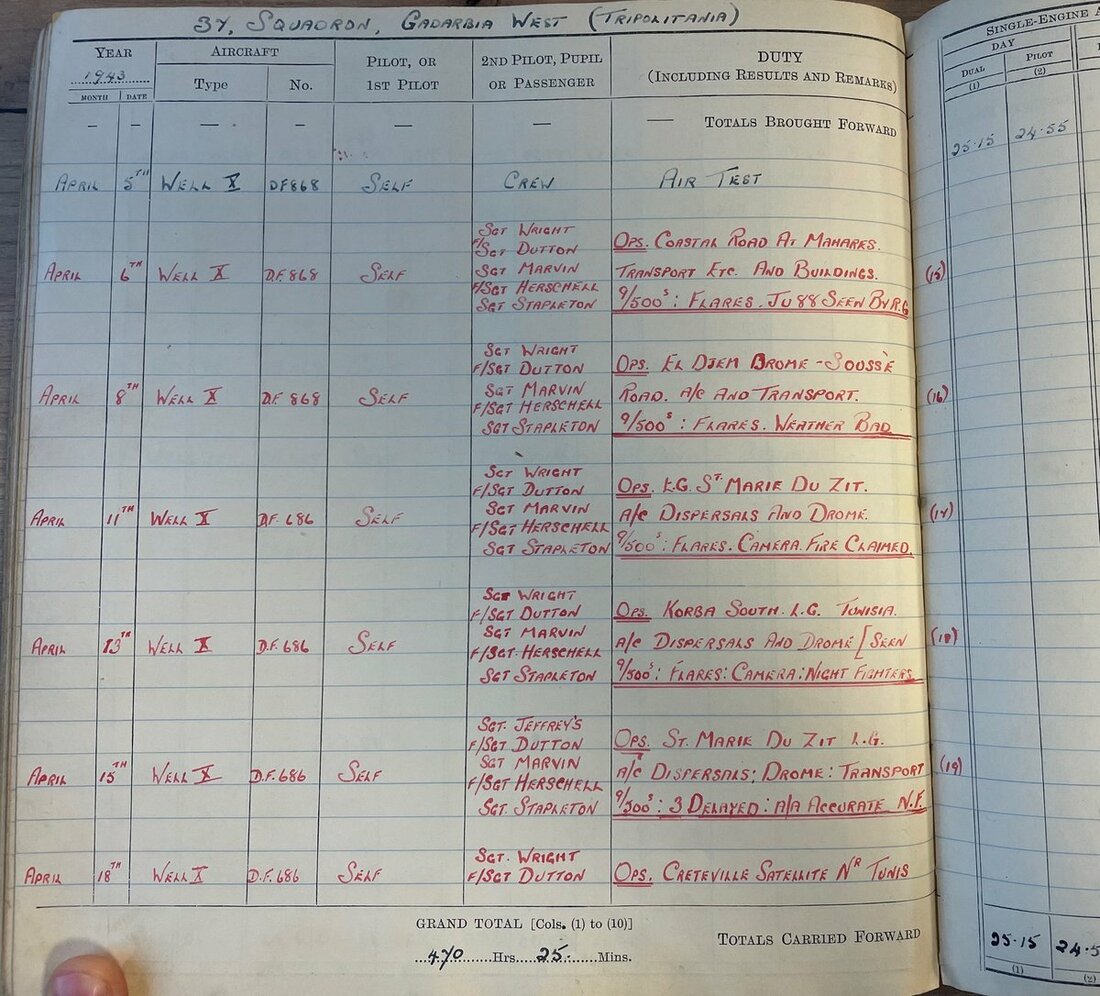 37, SQUADRON, GADARBIA WEST (TRIPOLITANIA)
YEAR AIRCRAFT PILOT, OR 1ST PILOT 2ND PILOT, PUPIL OR PASSENGER DUTY (INCLUDING RESULTS AND REMARKS)
1943 Type No.
MONTH DATE
— — — — — — — TOTALS BROUGHT FORWARD
APRIL 5TH WELL X DF868 SELF CREW AIR TEST
SGT WRIGHT
F/SGT DUTTON OPS. COASTAL ROAD AT MAHARES.
APRIL 6TH WELL X D.F. 868 SELF SGT MARVIN TRANSPORT ETC. AND BUILDINGS.
F/SGT HERSCHELL
SGT STAPLETON 9/500s: FLARES. JU 88 SEEN BY R.G
SGT WRIGHT
F/SGT DUTTON OPS. EL DJEM DROME - SOUSSÈ
APRIL 8TH WELL X D.F. 868 SELF SGT MARVIN ROAD. A/C AND TRANSPORT.
F/SGT HERSCHELL
SGT STAPLETON 9/500s: FLARES. WEATHER BAD
SGT WRIGHT
F/SGT DUTTON OPS. L.G. ST MARIE DU ZIT.
APRIL 11TH WELL X D.F. 686 SELF SGT MARVIN A/C DISPERSALS AND DROME.
F/SGT HERSCHELL
SGT STAPLETON 9/500s: FLARES. CAMERA. FIRE CLAIMED.
SGT WRIGHT
F/SGT DUTTON OPS. KORBA SOUTH. L.G. TUNISIA.
APRIL 13TH WELL X D.F. 686 SELF SGT MARVIN A/C DISPERSALS AND DROME [SEEN
F/SGT HERSCHELL
SGT STAPLETON 9/500s: FLARES: CAMERA: NIGHT FIGHTERS
SGT. JEFFREY'S
F/SGT DUTTON OPS. ST. MARIE DU ZIT L.G.
APRIL 15TH WELL X D.F. 686 SELF SGT MARVIN A/C DISPERSALS; DROME: TRANSPORT
F/SGT HERSCHELL
SGT. STAPLETON 9/500s: 3 DELAYED: A/A ACCURATE N.F.
SGT. WRIGHT
APRIL 18TH WELL X D.F. 686 SELF F/SGT DUTTON OPS. CRETEVILLE SATELLITE NR TUNIS
GRAND TOTAL [Cols. (1) to (10)]
470 Hrs. 25 Mins.
TOTALS CARRIED FORWARD
SINGLE-ENGINE A
DAY
DUAL PILOT
(1) (2)
25·15 24·55
(15)
(16)
(17)
(18)
(19)
25·15 24·5
(1) (2)